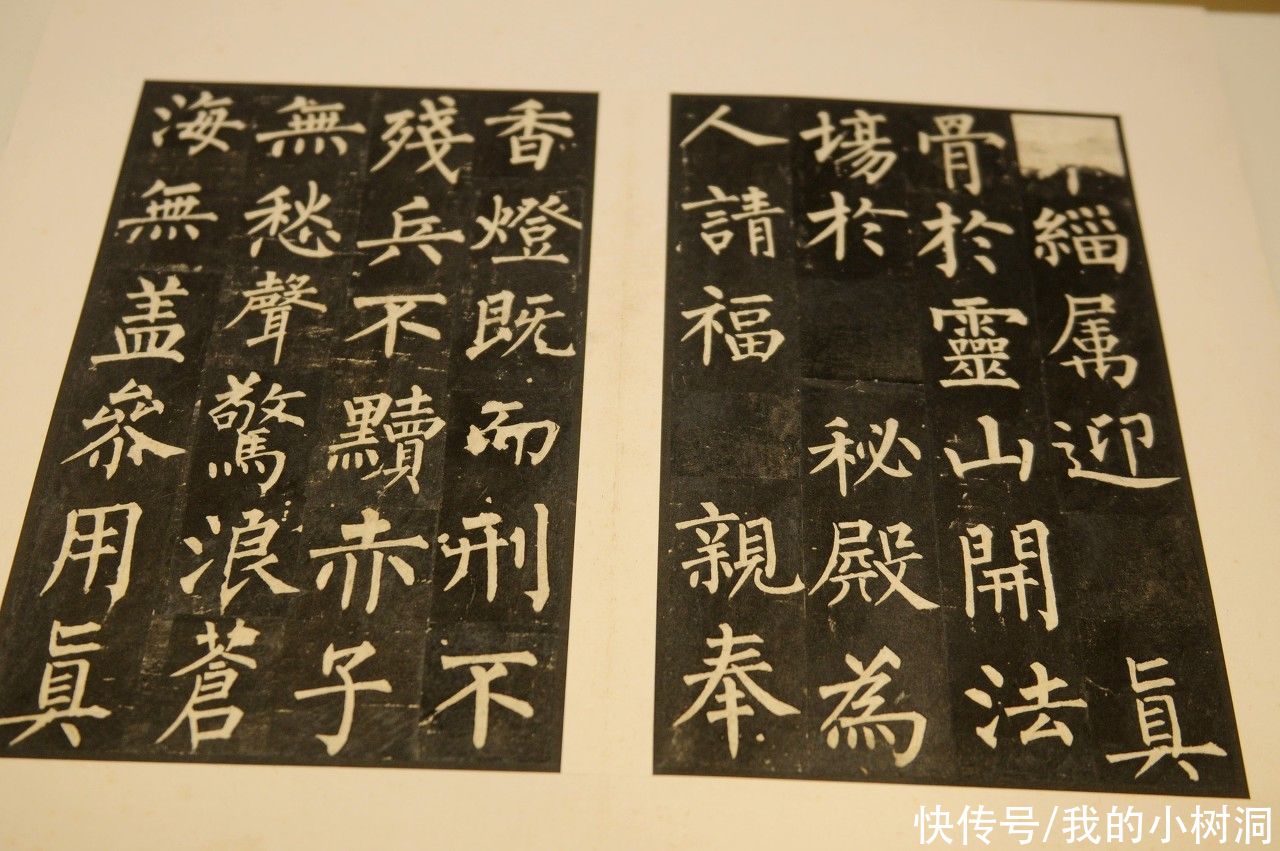 緇属迎真
骨於靈山開法
場於秘殿為
人請福親奉
香燈既而刑不
殘兵不黷赤子
無愁聲驚浪蒼
海無盖參用眞
快传号/我的小树洞